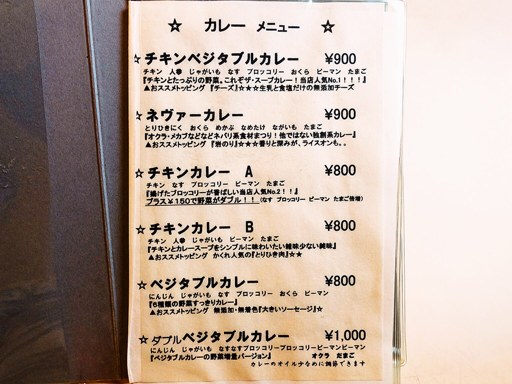 ☆ カレー メニュー ☆
☆チキンベジタブルカレー ¥900
チキン 人参 じゃがいも なす ブロッコリー おくら ピーマン たまご
『チキンとたっぷりの野菜。これぞザ・スープカレー！当店人気No.1！！！』
▲おススメトッピング 『チーズ』☆★☆生乳と食塩だけの無添加チーズ
☆ネヴァーカレー ¥900
とりひきにく おくら めかぶ なめたけ ながいも たまご
『オクラ・メカブなどなどネバリ系食材まつり！他ではない独創系カレー』
▲おススメトッピング 『岩のり』★☆★香りと深みが、ライスオンも。。
☆チキンカレー A ¥800
チキン なす ブロッコリー ピーマン たまご
『揚げたブロッコリーが香ばしい当店人気No.2！！』
プラス¥150で野菜がダブル！！(なす ブロッコリー ピーマン たまご倍増)
☆チキンカレー B ¥800
チキン 人参 じゃがいも ピーマン たまご
『チキンとカレースープをシンプルに味わいたい雑味少ない純味』
▲おススメトッピング かくれ人気の『とりひき肉』☆★
☆ベジタブルカレー ¥800
にんじん じゃがいも なす ブロッコリー おくら ピーマン
『6種類の野菜すっきりカレー』
▲おススメトッピング 無添加・無着色『大きいソーセージ』☆
☆ダブルベジタブルカレー ¥1,000
にんじん じゃがいも なすなすブロッコリーブロッコリーピーマンピーマン
『ベジタブルカレーの野菜増量バージョン』 オクラ たまご
カレーのオイル少なめに調節できます